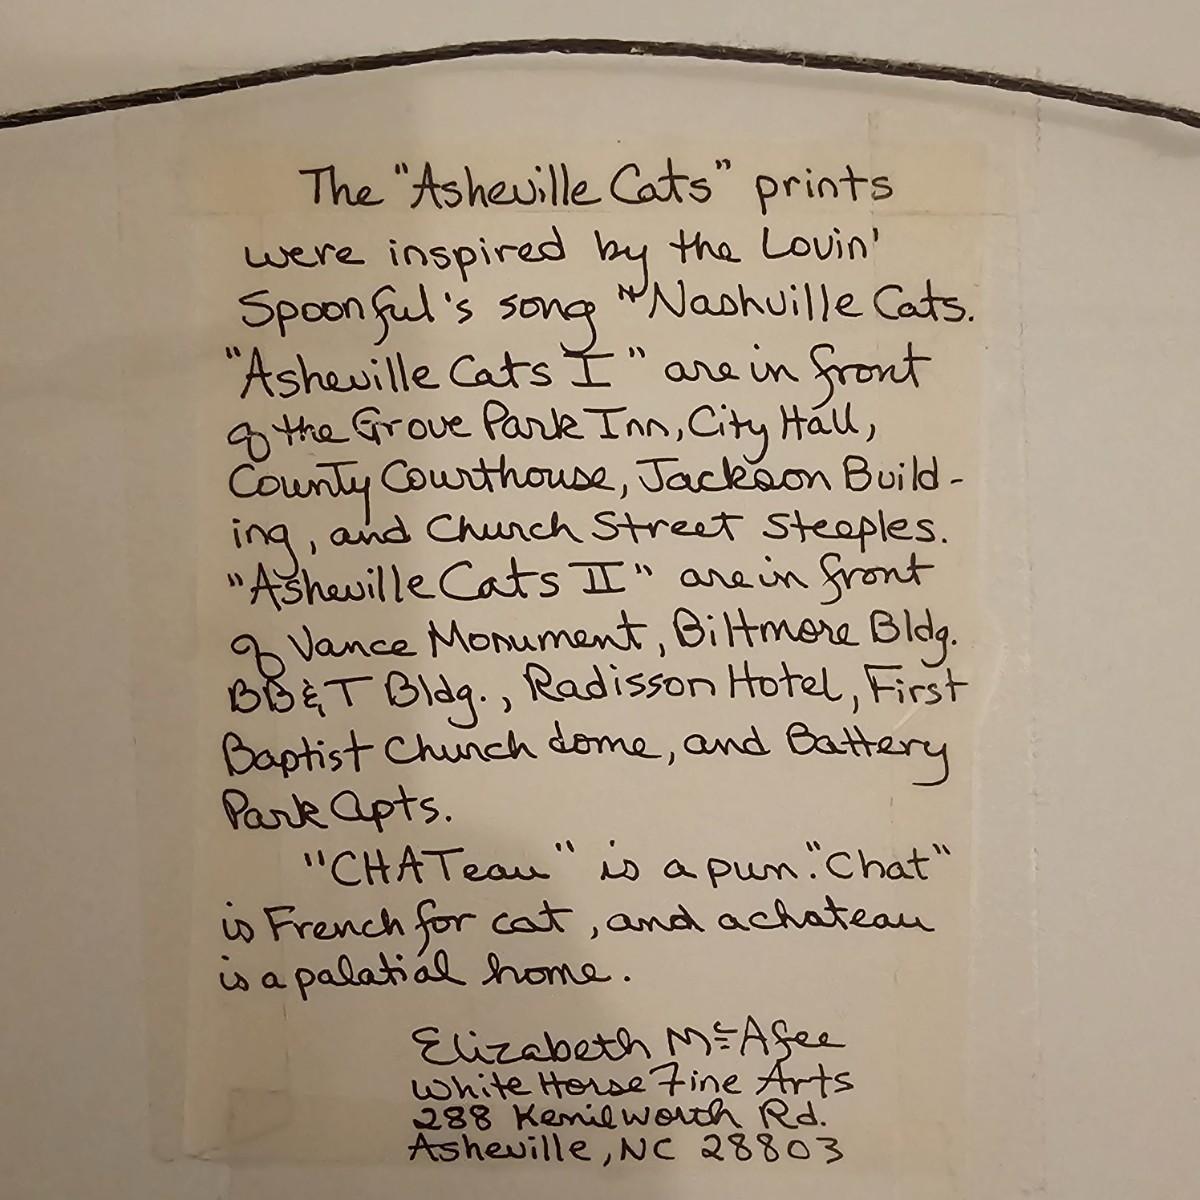 The "Asheville Cats" prints
were inspired by the Lovin'
Spoonful's song "Nashville Cats.
"Asheville Cats I" are in front
of the Grove Park Inn, City Hall,
County Courthouse, Jackson Build-
ing, and Church Street Steeples.
"Asheville Cats II" are in front
of Vance Monument, Biltmore Bldg.
BB&T Bldg., Radisson Hotel, First
Baptist Church dome, and Battery
Park Apts.
"CHATeau" is a pun. "Chat"
is French for cat, and a chateau
is a palatial home.
Elizabeth McAfee
White Horse Fine Arts
288 Kenilworth Rd.
Asheville, NC 28803